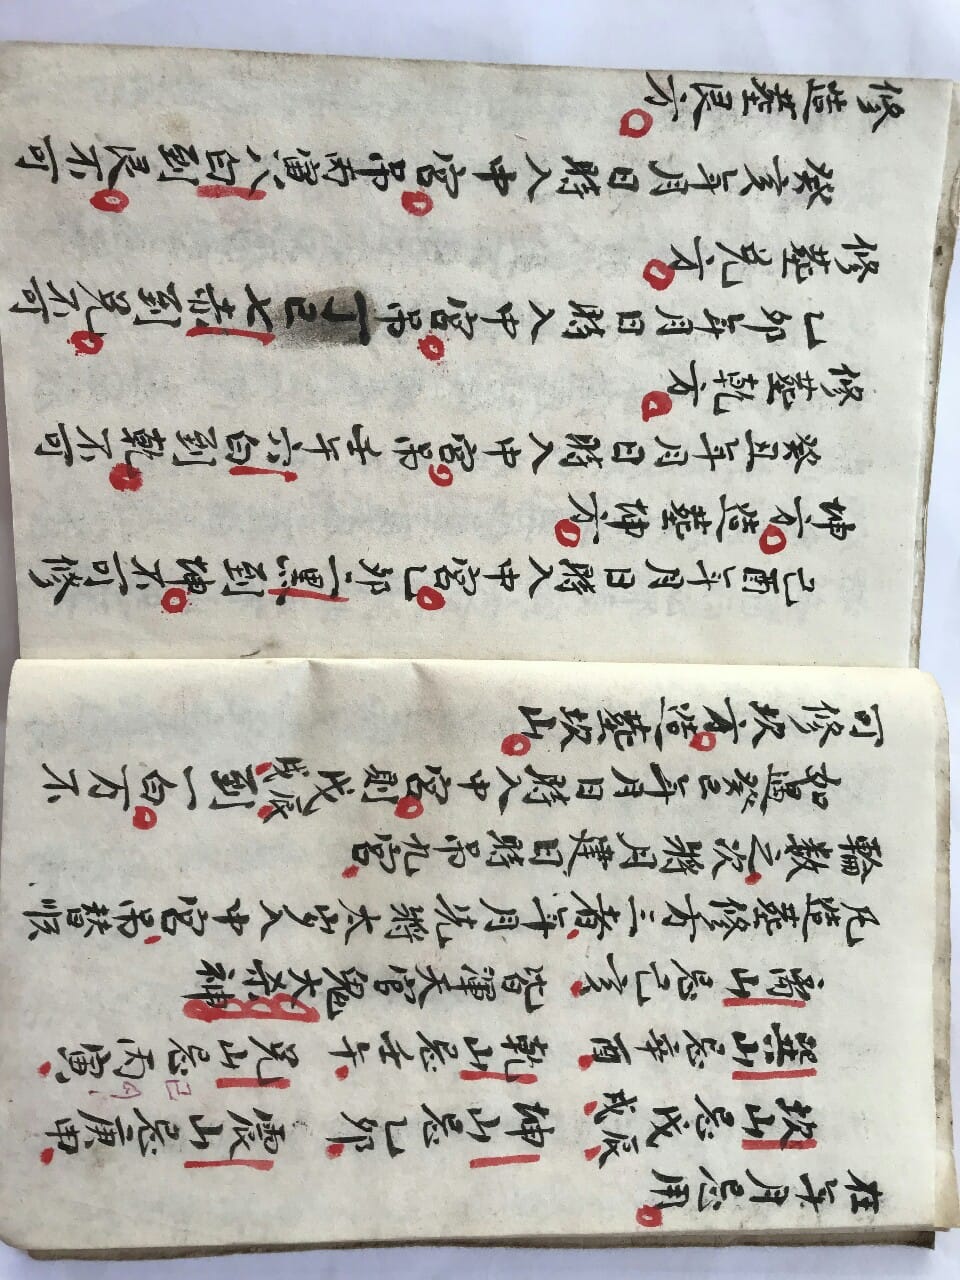 在年月忌用
坎山忌戊辰戌 坤山忌乙卯 震山忌庚申
巽山忌辛酉 乾山忌壬午 兑山忌丙寅 丁巳
離山忌己亥 此皆渾天官鬼大杀神
凡造葬修方三者年月先將太岁入中宮吊替順
輪数之次將月建日時吊九宮
如遇癸巳年月日時入中宮則戊辰戌到一白方不
可修坎方造葬坎山
己酉年月日時入中宮乙卯二黑到坤不可修
坤方造葬坤方
癸丑年月日時入中宮吊壬午六白到乾不可
修葬乾方
乙卯年月日時入中宮吊丁巳七赤到兑不可
修葬兑方
癸亥年月日時入中宮吊丙寅八白到艮不可
修造葬艮方